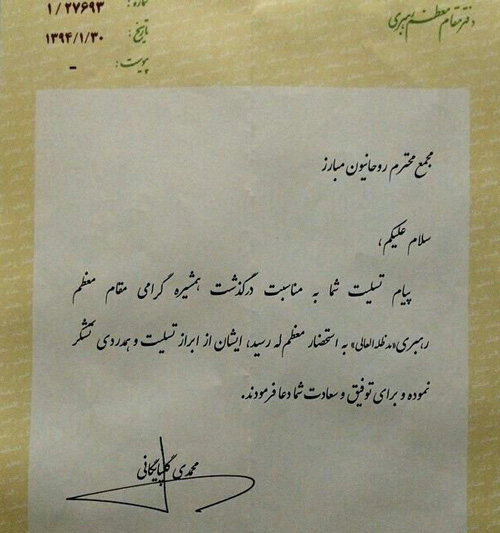 دفتر مقام معظم رهبری
شماره: ۱/۲۷۶۹۳
تاریخ: ۱۳۹۴/۱/۳۰
پیوست: -
مجمع محترم روحانیون مبارز
سلام علیکم،
پیام تسلیت شما به مناسبت درگذشت همشیره گرامی مقام معظم
رهبری«مدظله‌العالی» به استحضار معظم‌له رسید، ایشان از ابراز تسلیت و همدردی تشکر
نموده و برای توفیق و سعادت شما دعا فرمودند.
محمدی گلپایگانی